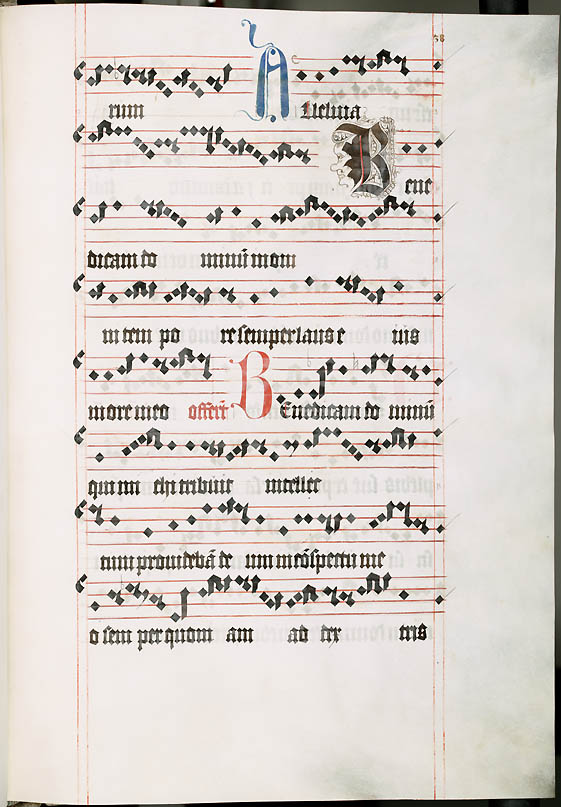 38
rum Alleluia
Bene
dicam do minū in om
ni tem po re semper laus e iiis
in ore meo offerť BEnedicam do minū
qui mi chi tribuit intellec
tum provide bā de um in cōspectu me
o sem per quom am ad dex tris